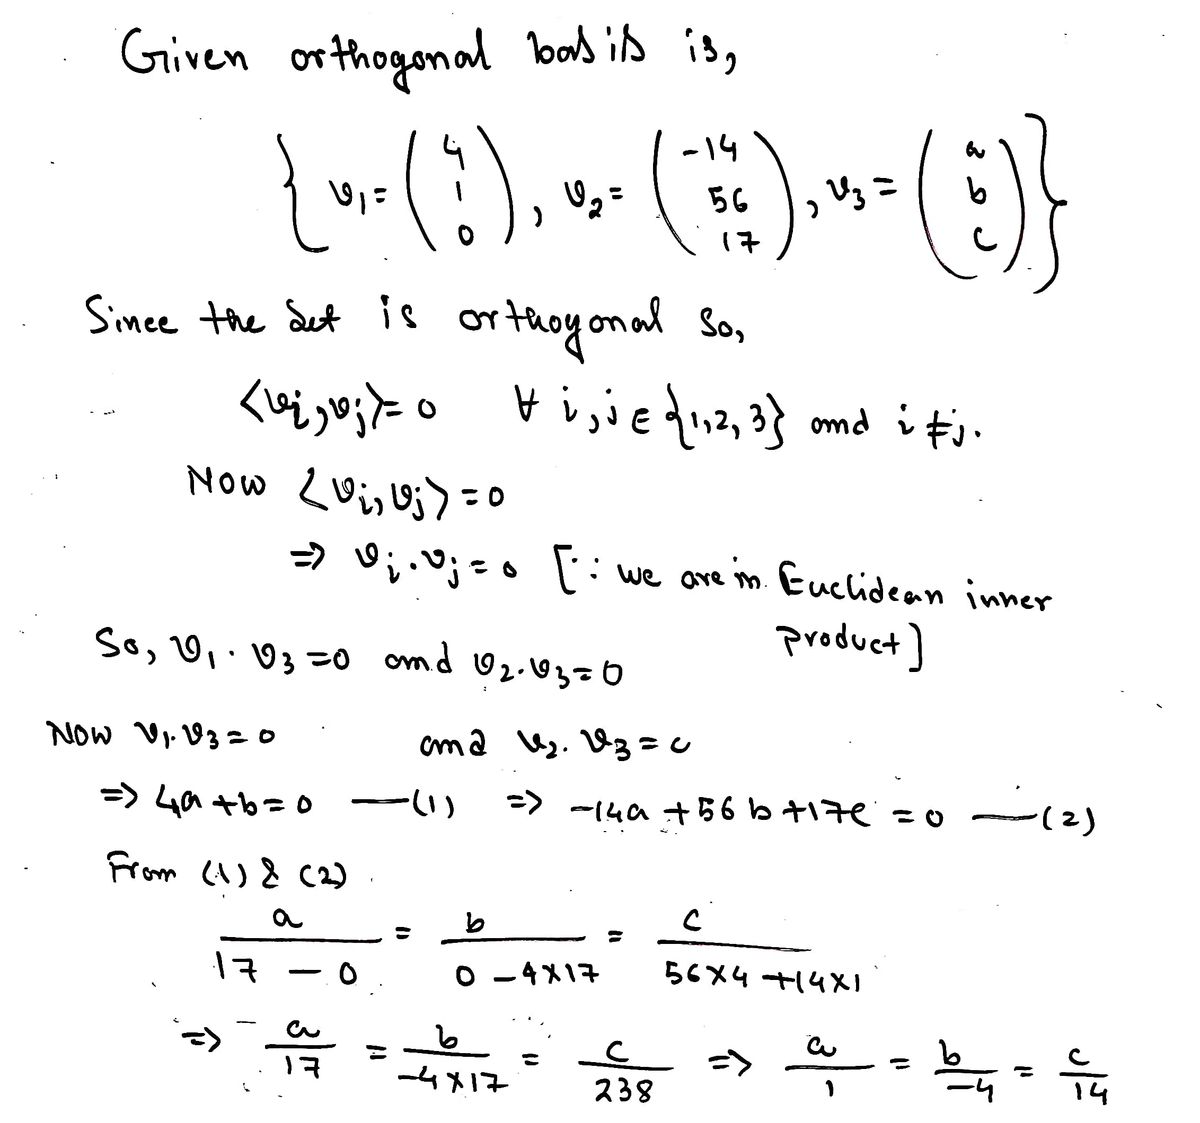 Given orthogonal basis is,
{ v₁ = (4 1 0), v₂ = (-14 56 17), v₃ = (a b c) }
Since the set is orthogonal so,
<vᵢ, vⱼ> = 0 ∀ i, j ∈ {1, 2, 3} and i ≠ j.
Now <vᵢ, vⱼ> = 0
⇒ vᵢ . vⱼ = 0 [∵ we are in Euclidean inner
product]
So, v₁ . v₃ = 0 and v₂ . v₃ = 0
Now v₁ . v₃ = 0 and v₂ . v₃ = 0
⇒ 4a + b = 0 —(1) ⇒ -14a + 56b + 17c = 0 —(2)
From (1) & (2)
a/(17 - 0) = b/(0 - 4×17) = c/(56×4 + 14×1)
⇒ a/17 = b/(-4×17) = c/238 ⇒ a/1 = b/-4 = c/14